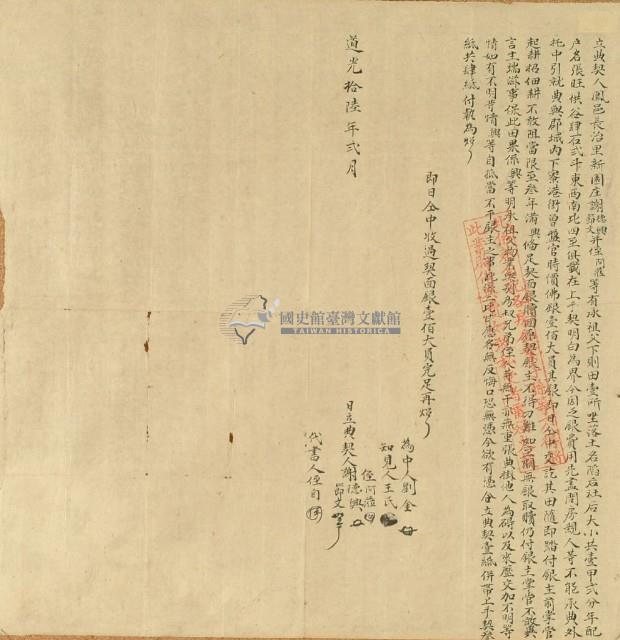 立典契人鳳邑長治里新園庄謝德興昴文并侄阿蒞等有承祖父下則田壹所坐落土名陷后社后大小共壹甲弍分年配
户名張旺供谷肆石弍斗東西南北四至俱載在上手契明白為界今因乏銀費用先盡問房親人等不能承典外
托中引就典與郡城內下寮港街曾盤官時價佛銀壹佰大員其銀即日仝中交訖其田隨即踏付銀主前掌管
起耕招佃耕不敢阻當限至叁年滿興俻足契面銀贖回原契銀主不得刁難如至期無銀取贖仍付銀主掌管不敢異
言生端滋事保此田果係興等明承祖父物業與別房叔兄弟侄人等無干亦無重張典掛他人為碍以及來歷交加不明等
情如有不明等情興等自抵當不干銀主之事此係二比甘愿各無反悔口恐無憑今欲有憑合立典契壹紙併帶上手契
紙共肆紙付執為炤
即日仝中收過契面銀壹佰大員完足再炤
為中人劉金
知見人王氏
侄阿蒞
日立典契人謝德興
昴文
代書人侄自
道光拾陸年弍月
國史館臺灣文獻館
TAIWAN HISTORICA